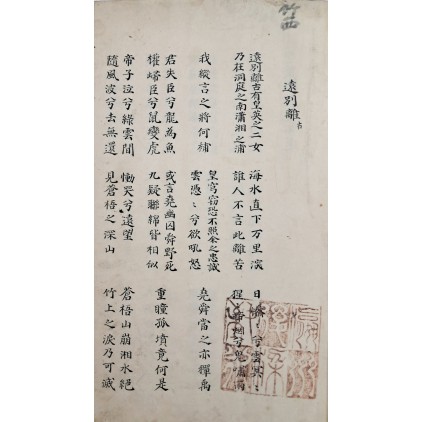 竹
遠別離 古
遠別離古有皇英之二女
乃在洞庭之南瀟湘之浦
海水直下万里深
誰人不言此離苦
日慘〻兮雲冥〻
猩〻啼烟兮鬼嘯雨
我縱言之將何補
皇穹竊恐不照余之忠誠
雲憑〻兮欲吼怒
堯舜當之亦禪禹
君失臣兮龍為魚
權歸臣兮鼠變虎
或言堯幽囚舜野死
九疑聯綿皆相似
重瞳孤墳竟何是
帝子泣兮綠雲間
隨風波兮去無還
慟哭兮遠望
見蒼梧之深山
蒼梧山崩湘水絕
竹上之淚乃可滅